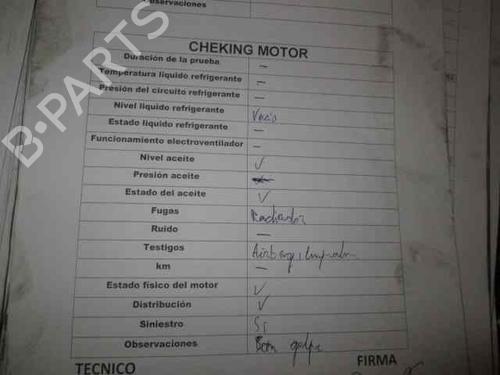 Observaciones
CHEKING MOTOR
Duración de la prueba —
Temperatura liquido refrigerante —
Presión del circuito refrigerante —
Nivel liquido refrigerante Vacio
Estado liquido refrigerante —
Funcionamiento electroventilador —
Nivel aceite ✓
Presión aceite
Estado del aceite ✓
Fugas Radiador
Ruido —
Testigos Airbag,
km —
Estado físico del motor ✓
Distribución ✓
Siniestro Si
Observaciones golpe
TECNICO FIRMA
B-PARTS